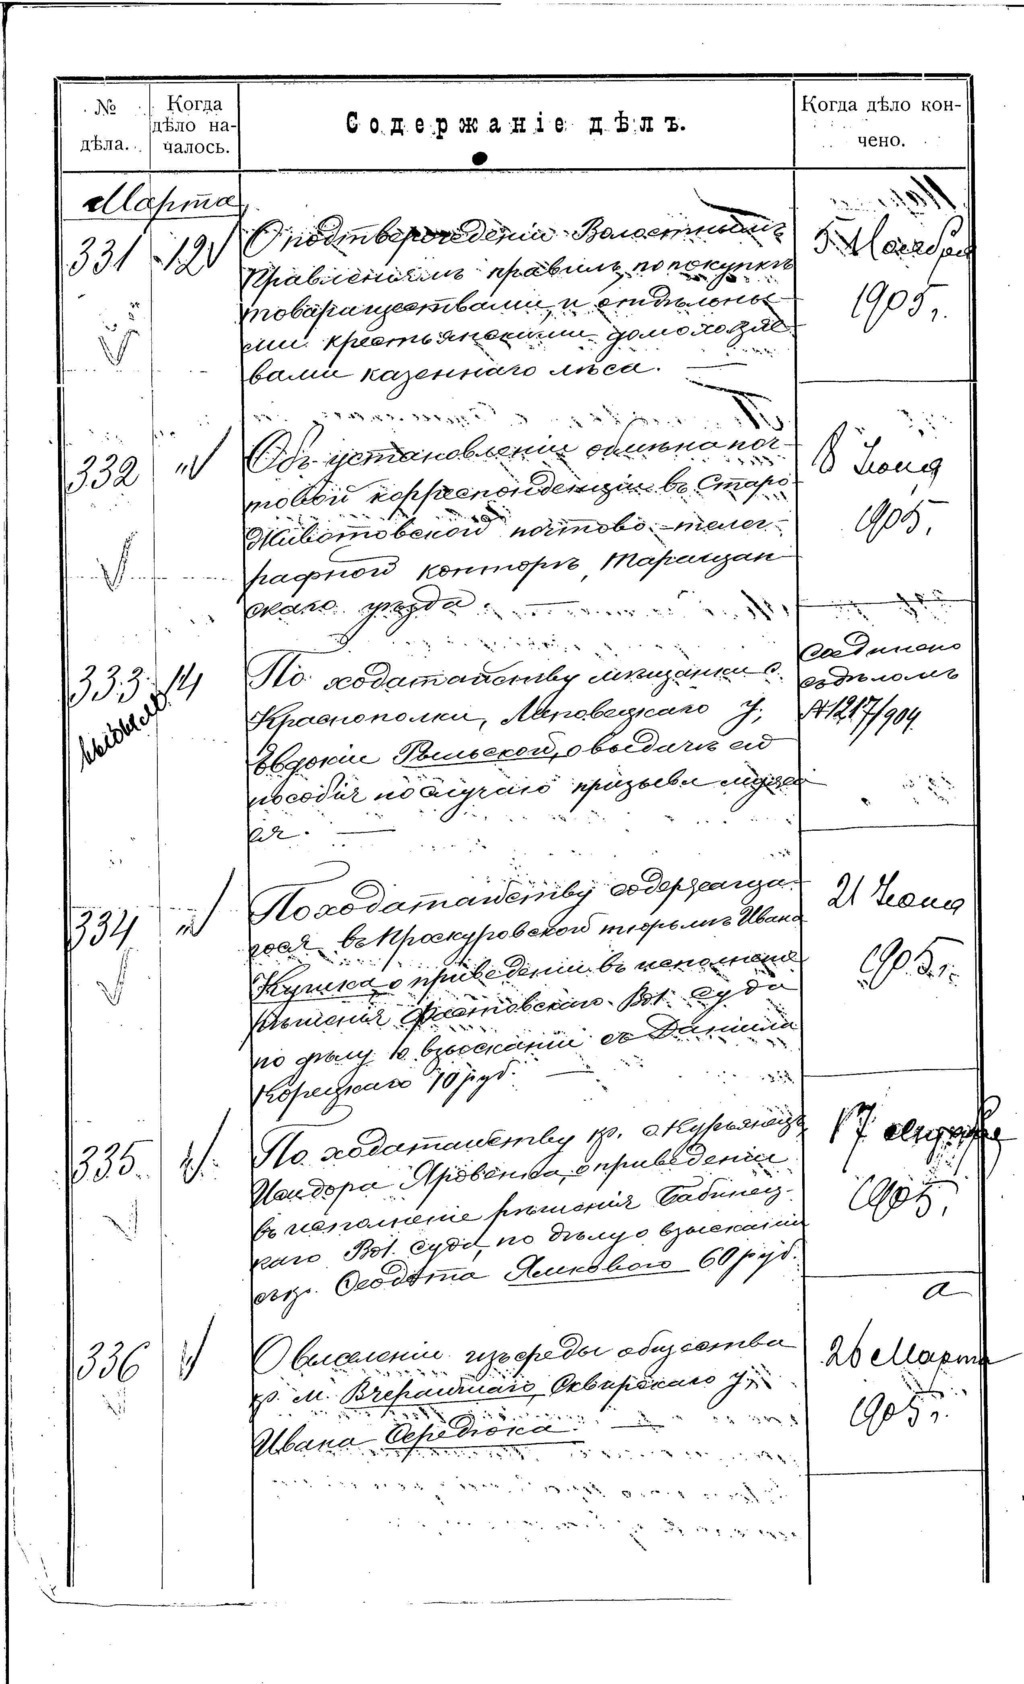 № дѣла.
Когда дѣло началось.
Содержаніе дѣлъ.
Когда дѣло кончено.
Марта
331 12
О подтвержденіи Волостнымъ
Правленіямъ правилъ по покупкѣ
товариществами и отдѣльны-
ми крестьянскими домохозяе-
вами казеннаго лѣса. —
5 Ноября
1905 г.
332 "
Объ установленіи обмѣна поч-
товой корреспонденціи въ Старо
Животовской почтово-телег-
рафной конторѣ, Таращан-
скаго уѣзда. —
8 Іюня
1905 г.
333 14
выбыло
По ходатайству мѣщанки с.
Краснополки, Липовецкаго у.,
Евдокіи Рыльской, о выдачѣ ей
пособія по случаю призыва мужа
ея. —
Соединено
съ дѣломъ
№ 1217/904
334 "
По ходатайству содержаща-
гося въ Проскуровской тюрьмѣ Ивана
Кушка, о приведеніи въ исполненіе
рѣшенія Фастовскаго Вол. суда
по дѣлу о взысканіи съ Даніила
Корецкаго 70 руб. —
21 Іюня
1905 г.
335 "
По ходатайству кр. с. Курьянецъ,
Исидора Яровенка, о приведеніи
въ исполненіе рѣшенія Бабинец-
каго Вол. суда, по дѣлу о взысканіи
съ кр. Ѳеодота Ямкового 60 руб.
17 сентября
1905 г.
336 "
О выселеніи изъ среды общества
кр. м. Вчерайшаго, Сквирскаго у.,
Ивана Середюка. —
а
26 Марта
1905 г.